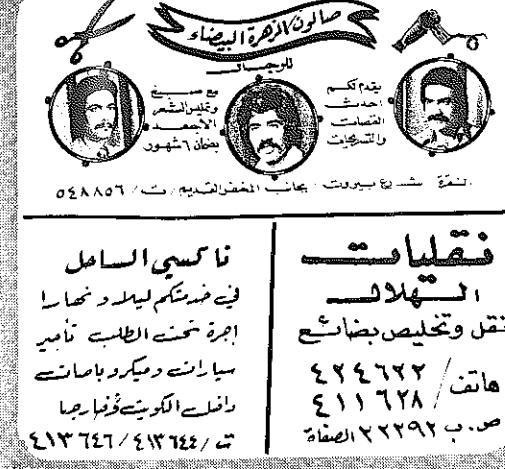 صالون الزهرة البيضاء
للرجال
يقدم لكم
احدث
القصات
والتسريحات
مع صبغ
وتمليس الشعر
الأجعد
بضمان ٦ شهور
النقرة شارع بيروت بجانب المخفر القديم / ت / ٥٤٨٨٥٦
نقليات
الهلال
نقل وتخليص بضائع
هاتف / ٤٢٤٦٢٢
٤١١٦٢٨
ص.ب ٢٢٢٩٢ الصفاة
تاكسي الساحل
في خدمتكم ليلا و نهارا
اجرة تحت الطلب تأجير
سيارات وميكروباصات
داخل الكويت وخارجها
ت / ٤١٣٦٤٤ / ٤١٣٦٤٦